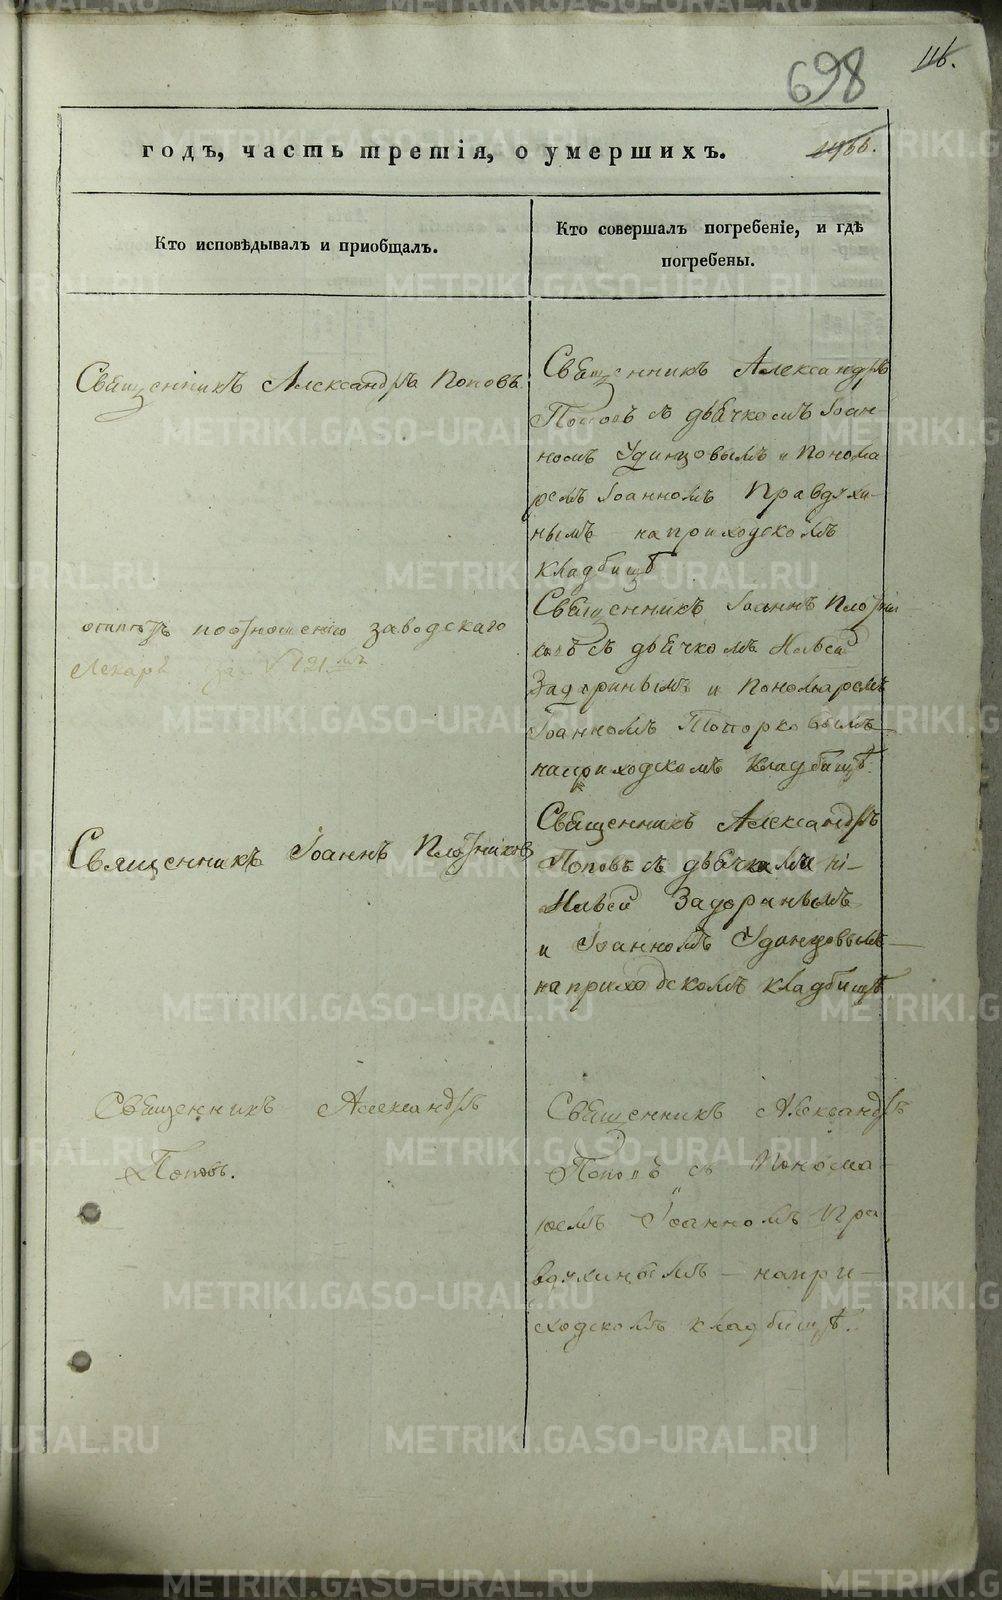 698
116.
годъ, часть третія, о умершихъ.
Кто исповѣдывалъ и приобщалъ.
Кто совершалъ погребеніе, и гдѣ
погребены.
Священникъ Александръ Поповъ.
Священникъ Александръ
Поповъ съ дьячкомъ Іоан-
номъ Удинцовымъ и Понома
ремъ Іоанномъ Правдухи-
нымъ на приходскомъ
кладбищѣ
по отношенію заводскаго
Лекаря за № 121 мъ
Священникъ Іоаннъ Плотни
ковъ съ дьячкомъ
Задоринымъ и Пономаремъ
Іоанномъ Топорковымъ
на приходскомъ кладбищѣ.
Священникъ Іоаннъ Плотниковъ
Священникъ Александръ
Поповъ съ дьячками
Задоринымъ
и Іоанномъ Удинцовымъ
на приходскомъ кладбищѣ
Священникъ Александръ
Поповъ.
Священникъ Александръ
Поповъ съ Понома
ремъ Іоанномъ Пра
вдухинымъ – на при-
ходскомъ кладбищѣ.
METRIKI.GASO-URAL.RU